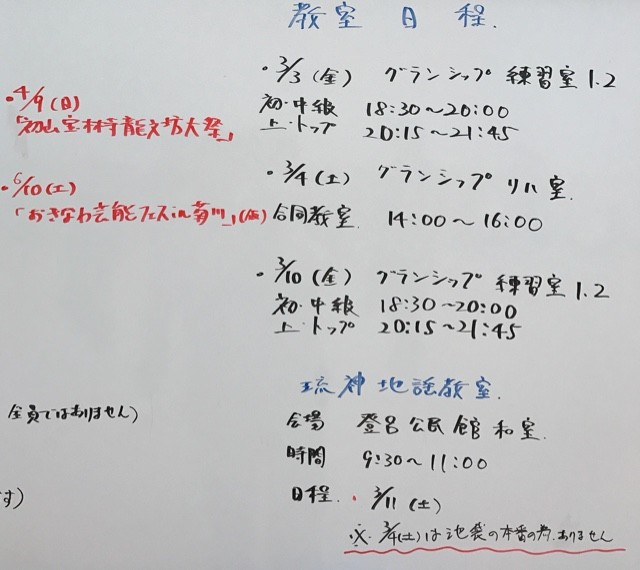 教室日程.
・3/3(金) グランシップ 練習室1.2
初・中級 18:30〜20:00
上・トップ 20:15〜21:45
・3/4(土) グランシップ リハ室.
合同教室. 14:00〜16:00
・3/10(金) グランシップ 練習室1.2
初・中級 18:30〜20:00
上・トップ 20:15〜21:45
・4/9(日)
「初山宝林寺龍文坊大祭」
・6/10(土)
「おきなわ芸能フェスin菊川」(仮)
琉神地謡教室.
会場 登呂公民館 和室.
時間 9:30〜11:00
日程. ・3/11(土)
※. 3/4(土)は池袋の本番の為.ありません
全員ではありません)
す)